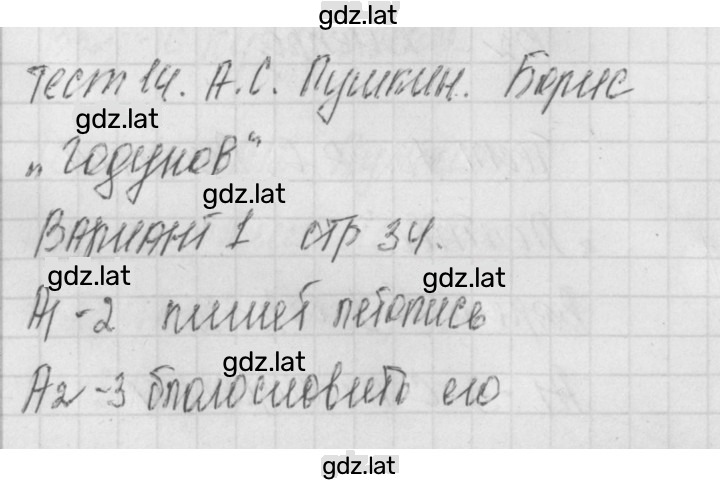 gdz.lat
Тест 14. А.С. Пушкин. Борис
gdz.lat
„Годунов“
gdz.lat
Вариант 1 стр 34.
gdz.lat
gdz.lat
А1 -2 пишет летопись
gdz.lat
А2 -3 благословить его
gdz.lat